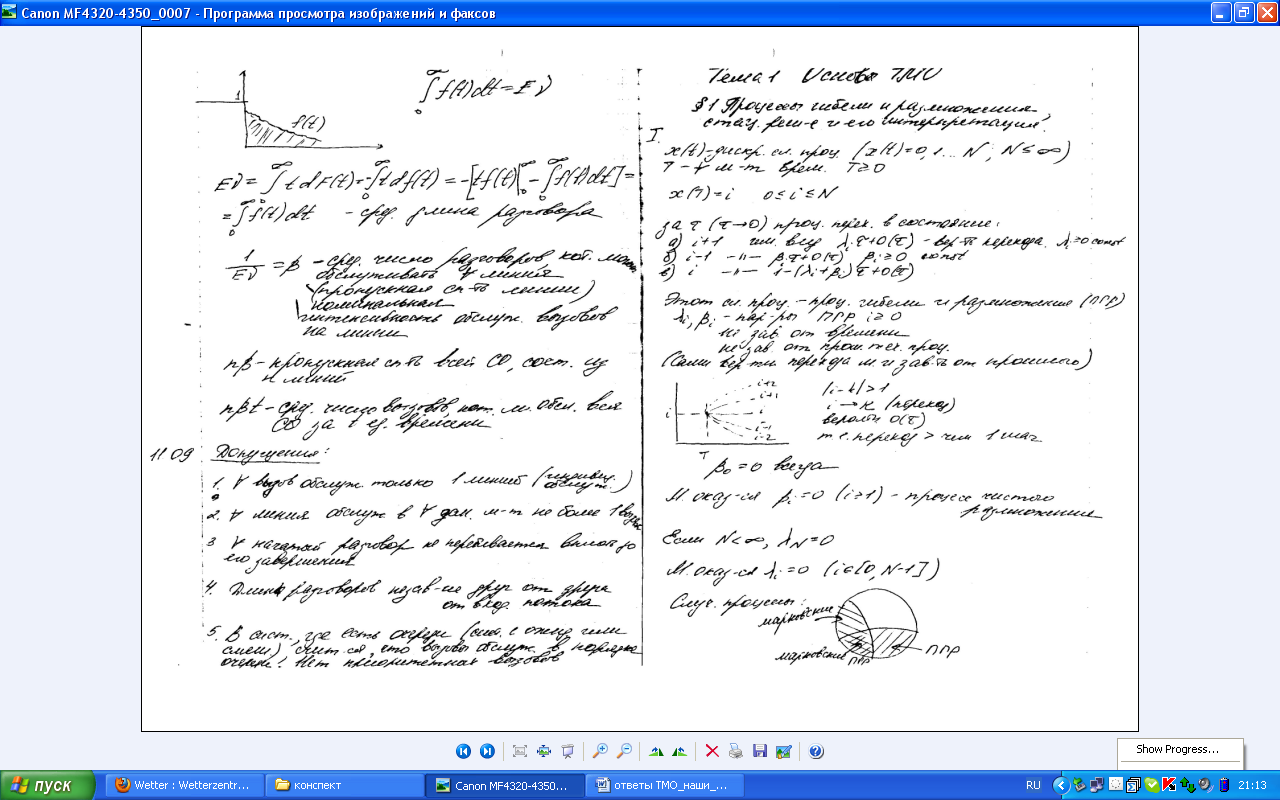 Canon MF4320-4350_0007 - Программа просмотра изображений и факсов
1
f(t)
∫₀^∞ f(t)dt = Eν
Eν = ∫₀^∞ t dF(t) = -∫₀^∞ t df(t) = -[tf(t)|₀^∞ - ∫₀^∞ f(t)dt] =
= ∫₀^∞ f(t)dt - сред. длина разговора
1/Eν = β - сред. число разговоров, кот. может
обслуживать ∀ линия
(пропускная сп-ть линии)
номинальная
интенсивность обслуж. вызовов
на линии
nβ - пропускная сп-ть всей СО, сост. из
n линий
nβt - сред. число вызовов, кот. м. обсл. вся
СО за t ед. времени
11 09 Допущения:
1. ∀ вызов обслуж. только 1 линией (индивид. обслуж.)
2. ∀ линия обслуж в ∀ дан. м-т не более 1 вызова
3 ∀ начатый разговор не перебивается вплоть до
его завершения
4. Длины разговоров незав-ые друг от друга
от вход. потока
5. В сист., где есть очереди (сист. с ожид или
смеш) счит-ся, что вызовы обслуж. в порядке
очереди! Нет приоритетная вызовов
Тема 1 Основы ТМО
§1 Процессы гибели и размножения,
стац. реш-е и его интерпретация.
I
x(t) - дискр. сл. проц. (x(t)=0,1... N; N≤∞)
T - ∀ м-т врем. T≥0
x(T)=i 0≤i≤N
за τ (τ→0) проц. перех. в состояние:
а) i+1 λᵢτ+0(τ) - вер-ть перехода. λᵢ≥0 const
б) i-1 -"- βᵢτ+0(τ) βᵢ≥0 const
в) i -"- 1-(λᵢ+βᵢ)τ+0(τ)
Этот сл. проц. - проц. гибели и размножения (ПГР)
λᵢ, βᵢ - пар-ры ПГР i≥0
не зав. от времени
не зав. от прош. теч. проц.
(Сами вер-ти перехода м. и зав-ть от прошлого)
i
i+2
i+1
i-1
i-2
T
|i-k|>1
i → k (переход)
вероятн 0(τ)
т.е. переход > чем 1 шаг
β₀=0 всегда
М. оказ-ся βᵢ=0 (i≥1) - процесс чистого
размножения
Если N<∞, λ_N=0
М. оказ-ся λᵢ=0 (i∈[0, N-1])
Случ. процессы:
марковские
марковские
ПГР
ПГР
Show Progress...
пуск
Wetter : Wetterzentr...
конспект
Canon MF4320-4350...
ответы ТМО_наши_...
RU
21:13